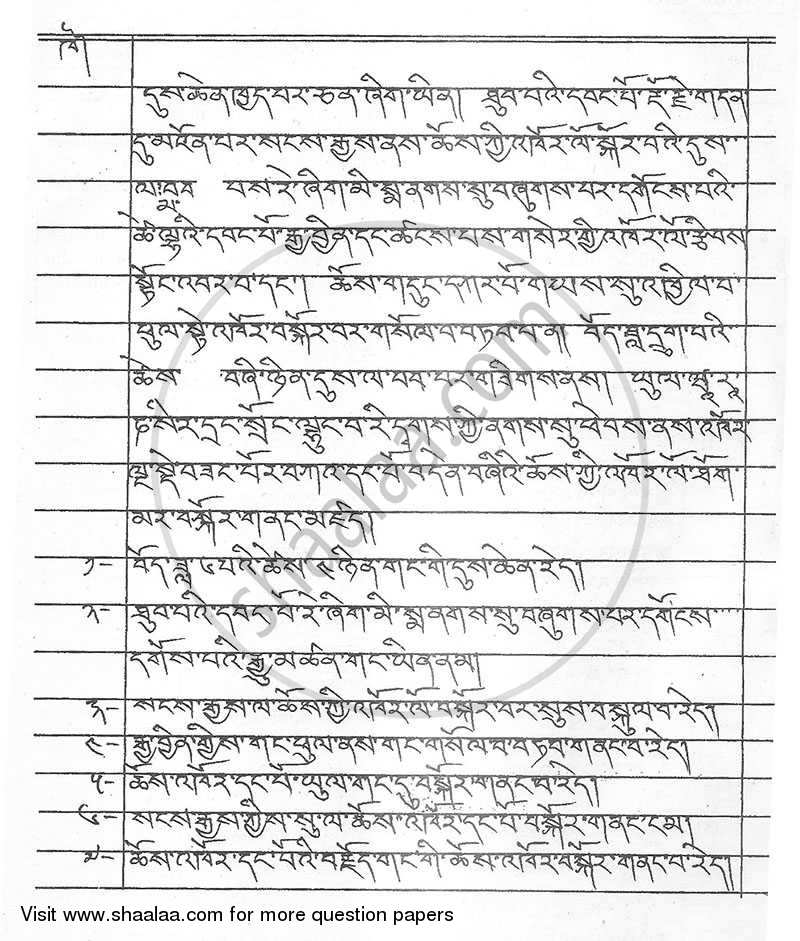 ཁོ།
དུས་ཆེན་ཁྱད་པར་ཅན་ཞིག་ཡིན། ཐུབ་པའི་དབང་པོ་རྡོ་རྗེ་གདན་
དུ་མངོན་པར་སངས་རྒྱས་ནས་ཆོས་ཀྱི་འཁོར་ལོ་སྐོར་བའི་དུས་
ལ་མ་བབ པས་རེ་ཞིག་མི་སྨྲ་ནགས་སུ་བཞུགས་པར་དགོངས་པའི་
ཚེ་ལྷའི་དབང་པོ་རྒྱ་བྱིན་དང་ཚངས་པས་གསེར་གྱི་འཁོར་ལོ་རྩིབས་
སྟོང་འབར་བ་དང་། ཆོས་གདུང་དཀར་པོ་གཡས་སུ་འཁྱིལ་བ་
ཕུལ་ཏེ་འཁོར་བསྐོར་བར་གསོལ་བ་བཏབ་པ་ན། བོད་ཟླ་དྲུག་པའི་
ཚེས བཞི་ཉིན་དུས་ལ་བབ་པར་གཟིགས་ནས། ཡུལ་ཝཱ་རཱ་
ཎ་སིར་དྲང་སྲོང་ལྷུང་བ་རི་དྭགས་ཀྱི་ནགས་སུ་ཕེབས་ནས་འཁོར་
ལྔ་སྡེ་བཟང་པོར་བཀའ་དང་པོ་བདེན་བཞིའི་ཆོས་ཀྱི་འཁོར་ལོ་ཐོག་
མར་བསྐོར་གནང་མཛད།
༡- བོད་ཟླ་ ༦ པའི་ཚེས་ ༤ ཉིན་གང་གི་དུས་ཆེན་རེད།
༢- ཐུབ་པའི་དབང་པོ་རེ་ཞིག་མི་སྨྲ་ནགས་སུ་བཞུགས་པར་དགོངས་
དགོས་པའི་རྒྱུ་མཚན་གང་ཡིན་ནམ།
༣- སངས་རྒྱས་ལ་ཆོས་ཀྱི་འཁོར་ལོ་བསྐོར་བར་སུས་བསྐུལ་བ་རེད།
༤- རྒྱ་བྱིན་གྱིས་གང་ཕུལ་ནས་གང་གསོལ་བ་བཏབ་གནང་བ་རེད།
༥- ཆོས་འཁོར་དང་པོ་ཡུལ་གང་དུ་བསྐོར་གནང་བ་རེད།
༦- སངས་རྒྱས་ཀྱིས་སུ་ལ་ཆོས་འཁོར་དང་པོ་བསྐོར་གནང་ངམ།
༧- ཆོས་འཁོར་དང་པོའི་བརྗོད་གང་གི་ཆོས་འཁོར་བསྐོར་གནང་བ་རེད།
shaalaa.com
Visit www.shaalaa.com for more question papers